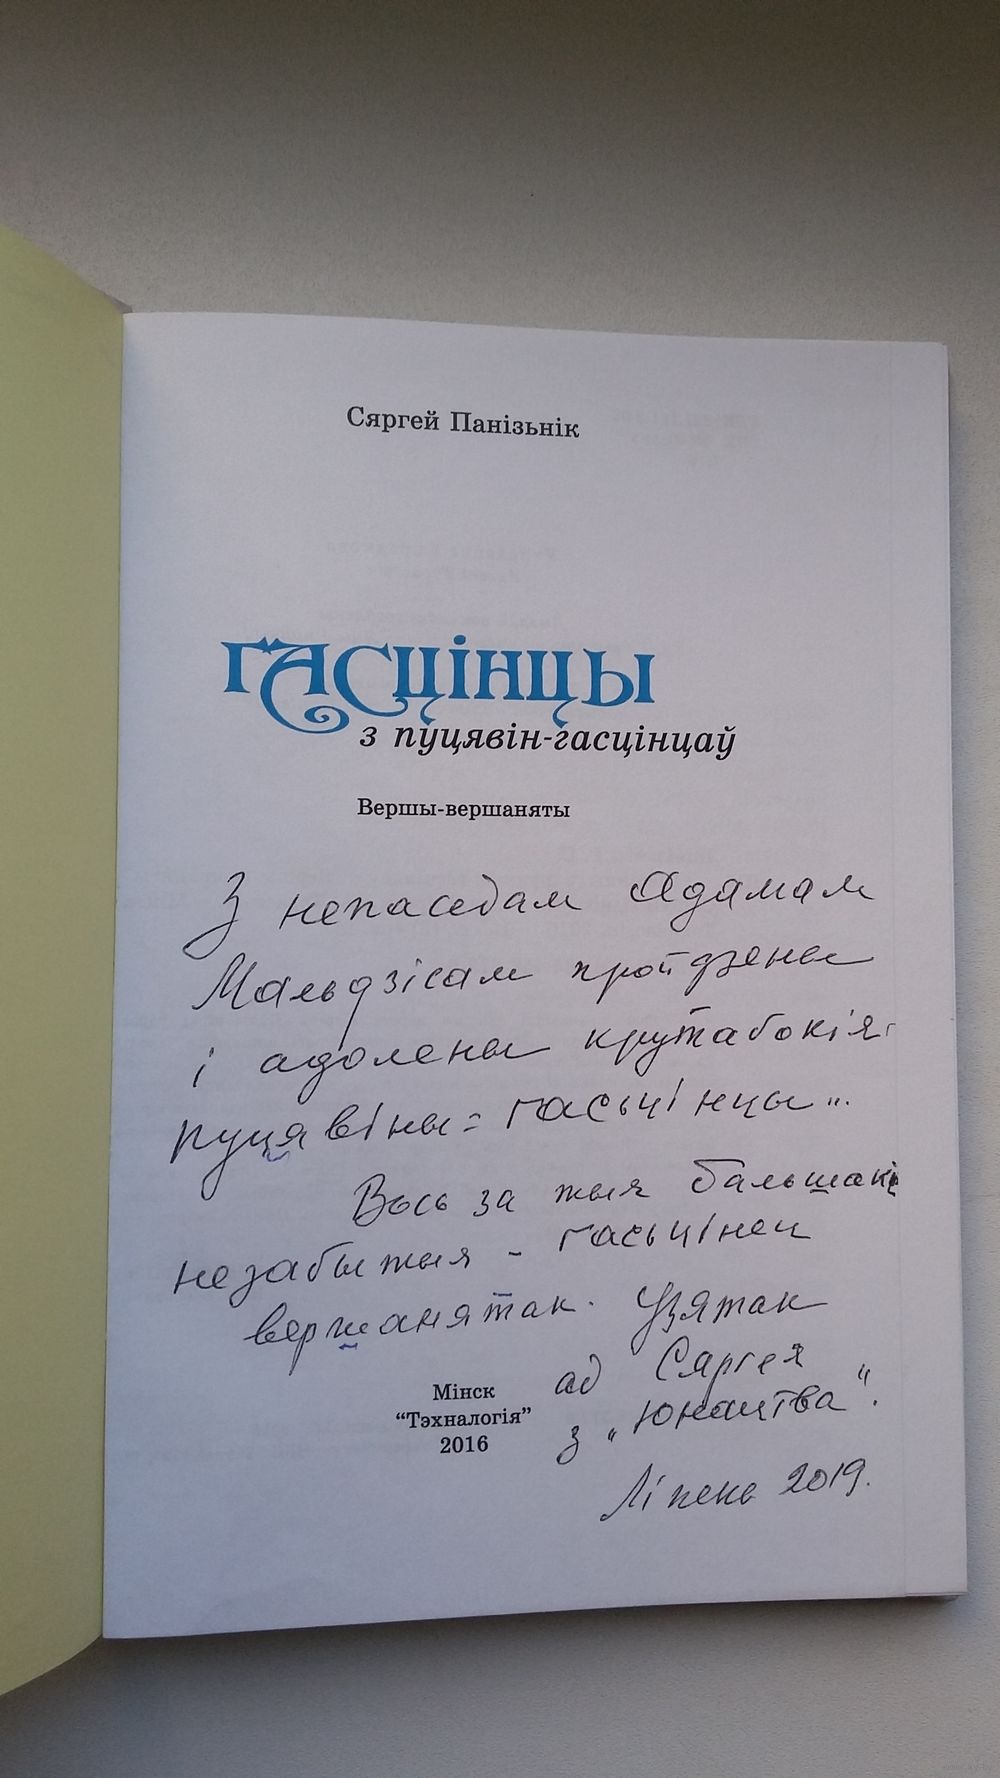 Сяргей Панізьнік
ГАСЦІНЦЫ
з пуцявін-гасцінцаў
Вершы-вершаняты
З непаседам Адамам
Мальдзісам пройдзены
і адолены крутабокія
пуцявіны: гасьцінцы...
Вось за тыя бальшакі
незабытыя - гасьцінец
вершанятак. Узятак
ад Сяргея
з „Юнацтва“.
Ліпень 2019.
Мінск
“Тэхналогія”
2016